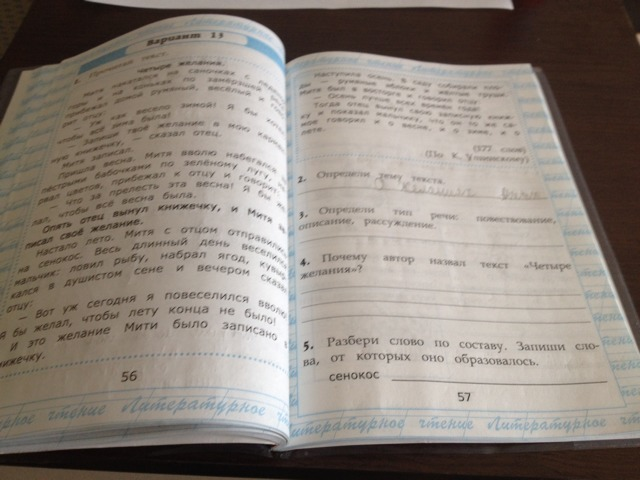 Литературное
Вариант 13
1. Прочитай текст.
Четыре желания.
Митя накатался на саночках с ледяной
на коньках по замёрзшей
прибежал домой румяный, весёлый и
рит отцу:
— Уж как весело зимой! Я бы
чтобы всё зима была!
— Запиши твоё желание в мою
ную книжечку, — сказал отец.
Митя записал.
Пришла весна. Митя вволю набегался
пёстрыми бабочками по зелёному лугу,
рвал цветов, прибежал к отцу и говорит
— Что за прелесть эта весна! Я бы
лал, чтобы всё весна была.
Опять отец вынул книжечку, и Митя
писал своё желание.
Настало лето. Митя с отцом отправились
на сенокос. Весь длинный день веселился
мальчик: ловил рыбу, набрал ягод,
кался в душистом сене и вечером сказал
отцу:
— Вот уж сегодня я повеселился вволю
Я бы желал, чтобы лету конца не было!
И это желание Мити было записано в
книжечку.
56
Литературное чтение Литературное
Наступила осень. В саду собирали пло-
ды — румяные яблоки и жёлтые груши.
Митя был в восторге и говорил отцу:
— Осень лучше всех времён года!
Тогда отец вынул свою записную книж-
ку и показал мальчику, что он то же са-
мое говорил и о весне, и о зиме, и о
лете.
(177 слов)
(По К. Ушинскому)
2. Определи тему текста.
3. Определи тип речи: повествование,
описание, рассуждение.
4. Почему автор назвал текст «Четыре
желания»?
5. Разбери слово по составу. Запиши сло-
ва, от которых оно образовалось.
сенокос
57
Литературное чтение Литературное